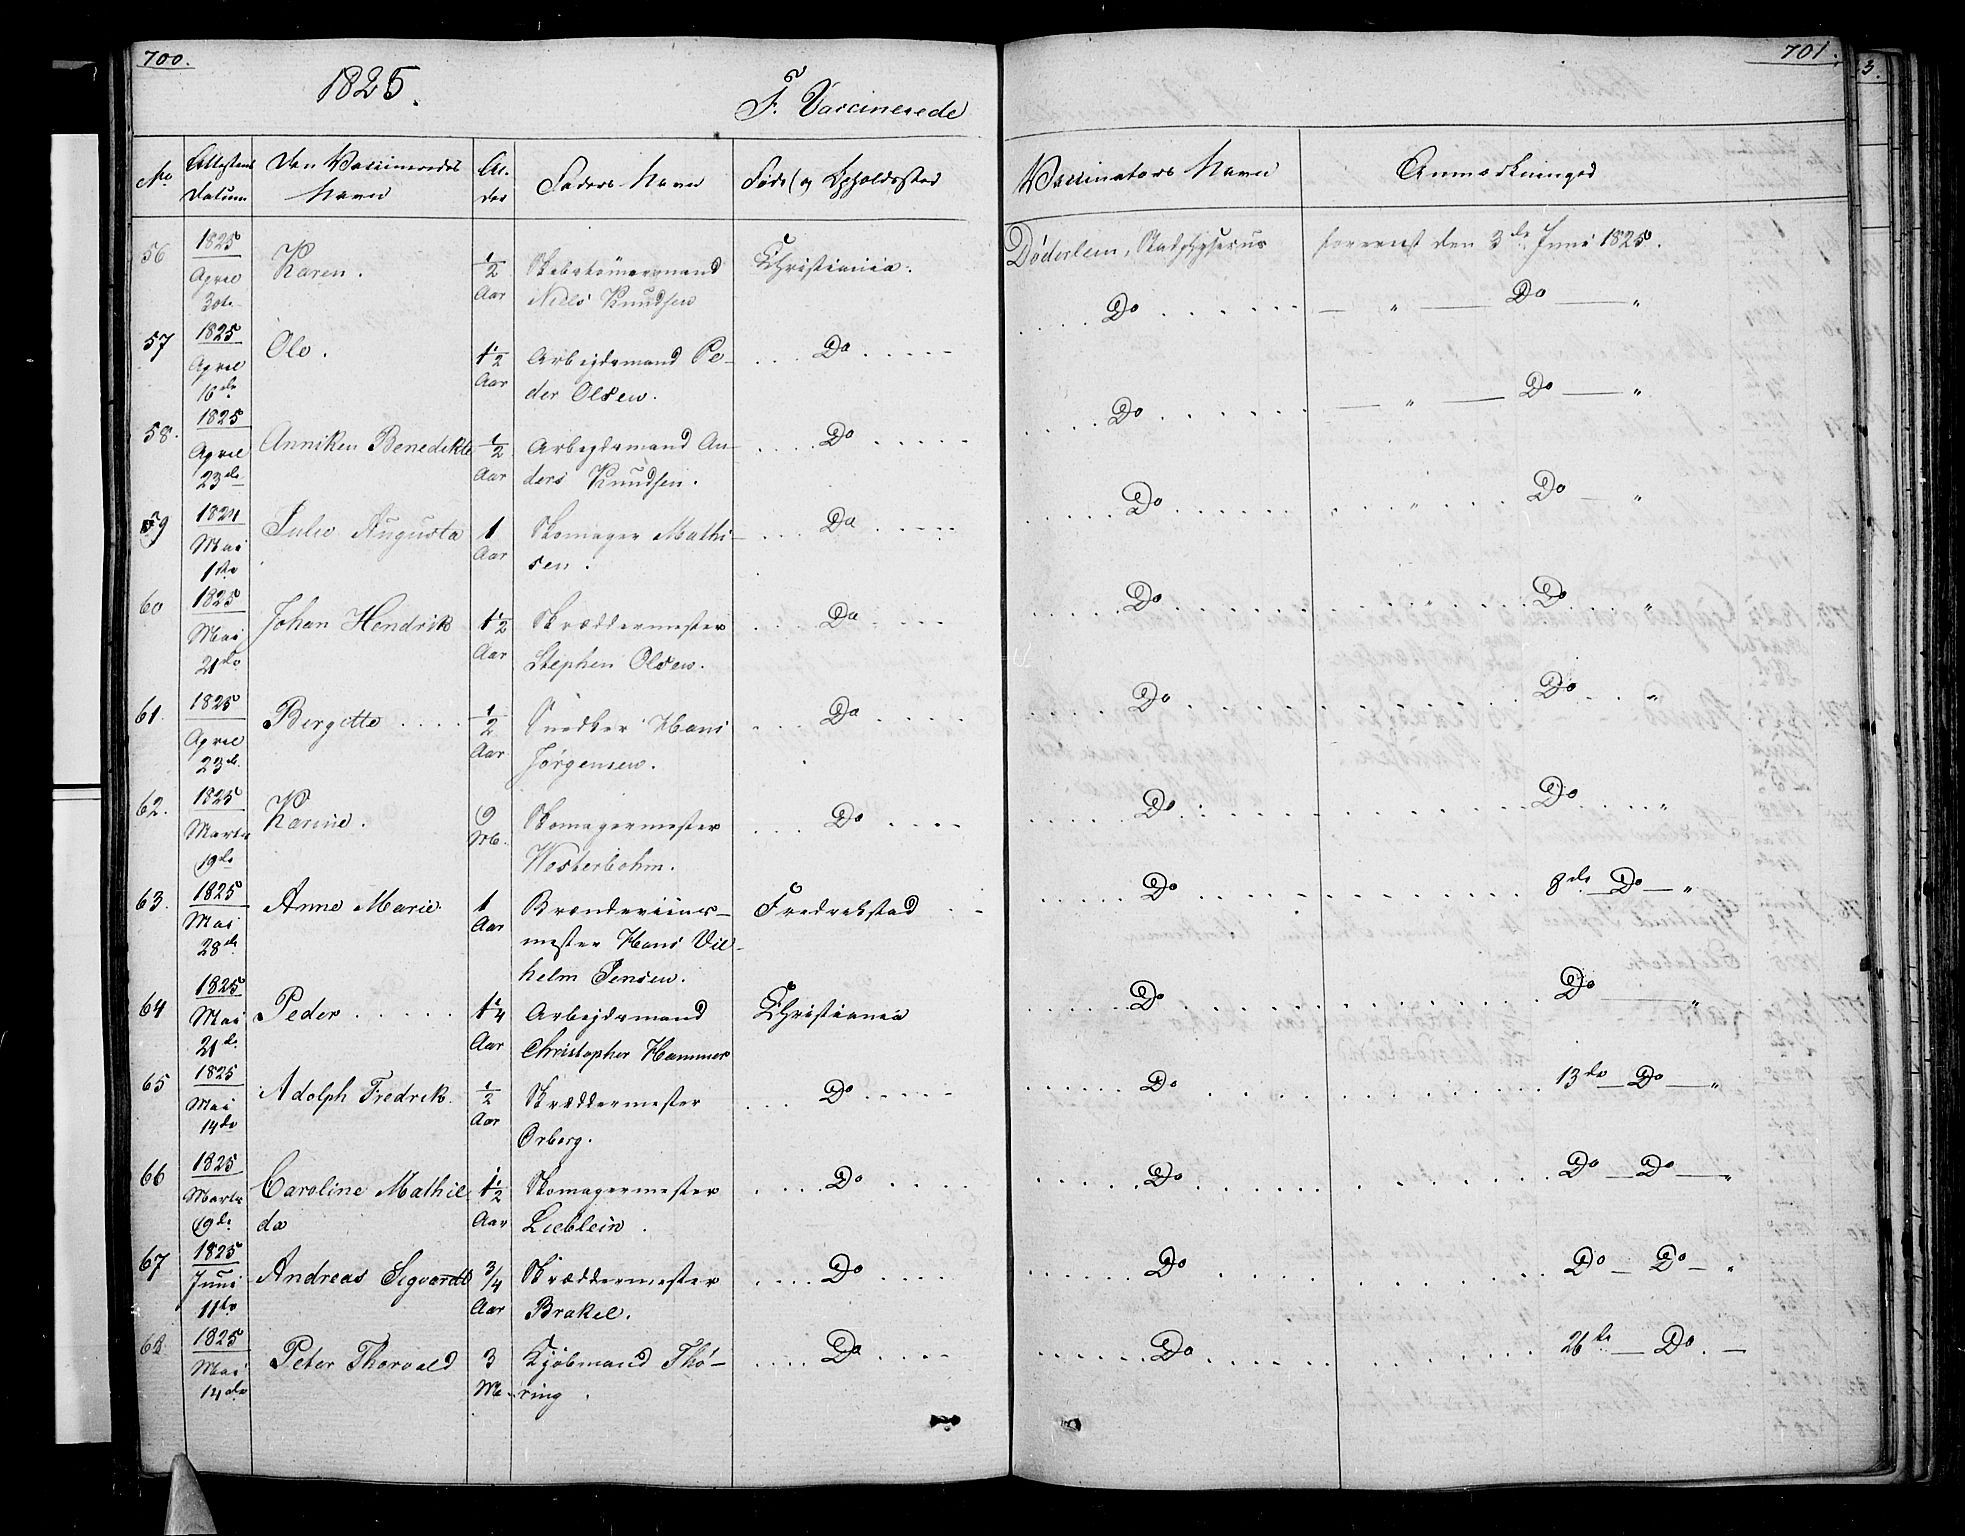 700.
1825.
F. Vaccinerede
No
Attestens Datum
Den Vaccineredes Navn
Al-der
Faders Navn
Føde (og Opholdssted
56 1825 April 30te Karen. 1/2 Aar Niels Knudsen Christiania.
57 1825 April 16de Ole. 1 1/2 Aar Arbeidsmand Pe-der Olsen. Do
58. 1825 April 23de Anniken Benedikte 1/2 Aar Arbeidsmand An-ders Knudsen. Do
59 1824 Mai 1ste Julie Augusta 1 Aar Skomager Mathi-sen. Do
60 1825 Mai 21de Johan Hendrik 1 1/2 Aar Skræddermester Stephen Olsen. Do
61. 1825 April 23de Bergitte 1/2 Aar Snedker Hans Jørgensen. Do
62. 1825 Marts 19de Karine. 9 Mb. Skomagermester Westerbohm. Do
63. 1825 Mai 28de Anne Marie. 1 Aar Brændeviins-mester Hans Vil-helm Jensen. Fredrekstad
64 1825 Mai 21de Peder 1 1/4 Aar Arbeidsmand Christopher Hammer Christiania
65 1825 Mai 14de Adolph Fredrik. 1/2 Aar Skræddermester Orberg. Do
66 1825 Marts 19de Caroline Mathil-da 1 1/2 Aar Skomagermester Lieblein. Do
67 1825 Juni 11te Andreas Sigvardt 3/4 Aar Skræddermester Brakel. Do
68 1825 Mai 14de Peter Thorvald 3 Kjøbmand Thø-ring. Do
701.
Vaccinators Navn
Anmærkninger
Døderlein, Stadphysicus forevist den 3de Juni 1825.
Do — " — Do — "
Do — " — Do — "
Do " Do — "
Do " Do "
Do Do "
Do Do "
Do 8de — Do — "
Do Do — "
Do 13de — Do — "
Do Do — Do — "
Do Do — Do — "
Do 26de — Do. —